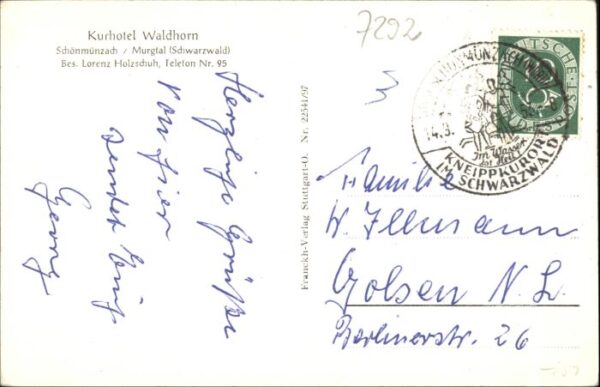 Kurhotel Waldhorn
Schönmünzach / Murgtal (Schwarzwald)
Bes. Lorenz Holzschuh, Telefon Nr. 95
7292
Herzliche Grüße
von hier
sendet Euch
Georg
Franckh-Verlag Stuttgart-O. Nr. 22541/97
DEUTSCHE
Im Wasser
ist Heil
KNEIPPKURORT
IM SCHWARZWALD
Familie
W. Illmann
Golsen N. L.
Berlinerstr. 26